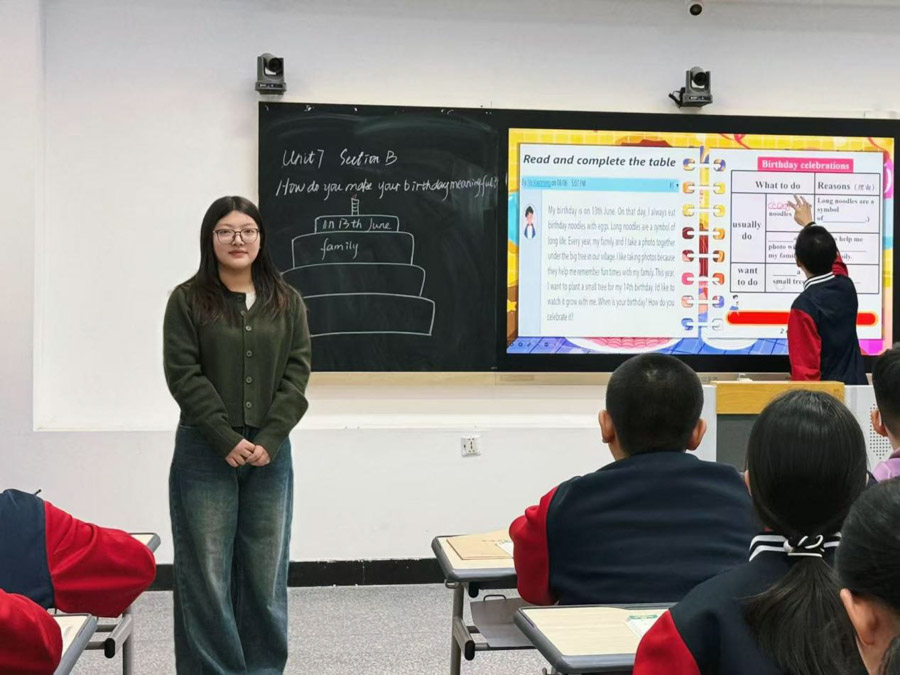 Unit 7 Section B
How do you make your birthday meaningful?
on 13th June
family
Read and complete the table
My birthday is on 13th June. On that day, I always eat
birthday noodles with eggs. Long noodles are a symbol of
long life. Every year, my family and I take a photo together
under the big tree in our village. I like taking photos because
they help me remember fun times with my family. This year,
I want to plant a small tree for my 14th birthday. I'd like to
watch it grow with me. When is your birthday? How do you
celebrate it?
Birthday celebrations
What to do
Reasons (理由)
usually
do
noodles
Long noodles are a
symbol
of ________)
photo
my family
help me
want
to do
a
small tree